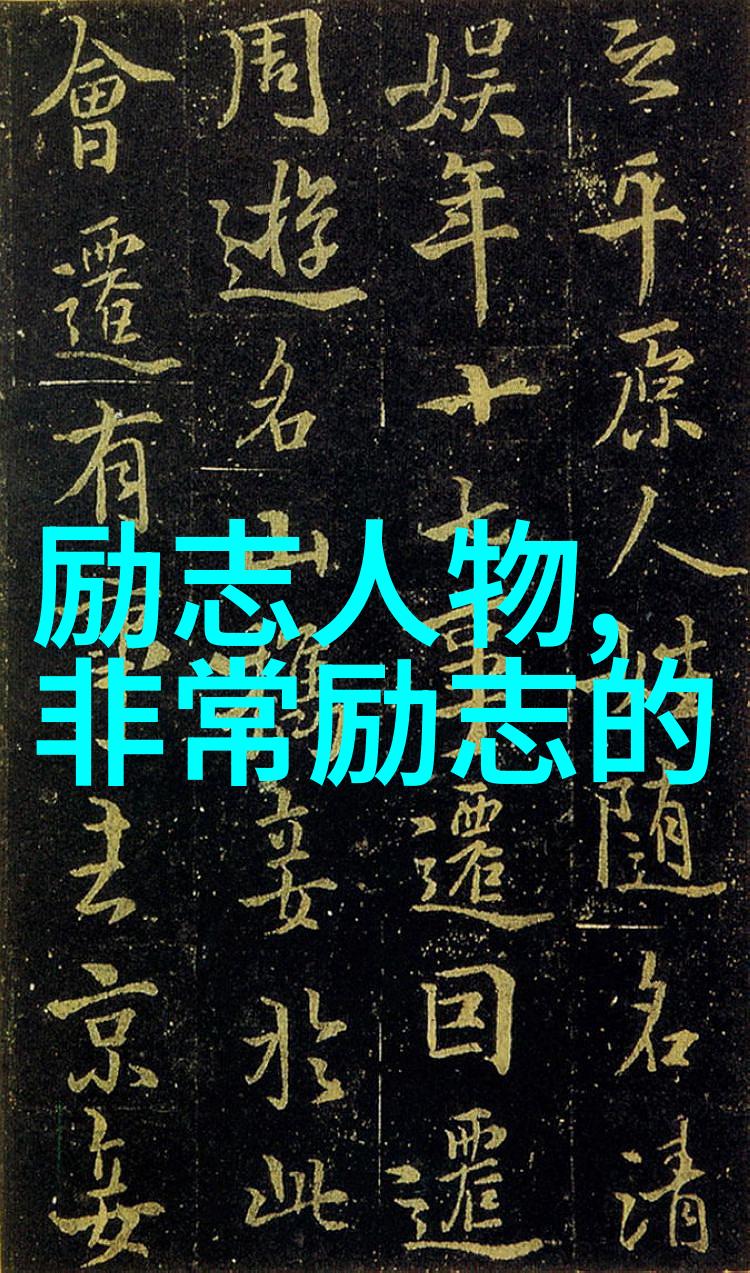 之平原人姓随名清
娱年十七事遷因遷
周遊名山携妾於此
會遷有事去京妾
励志人物,
非常励志的